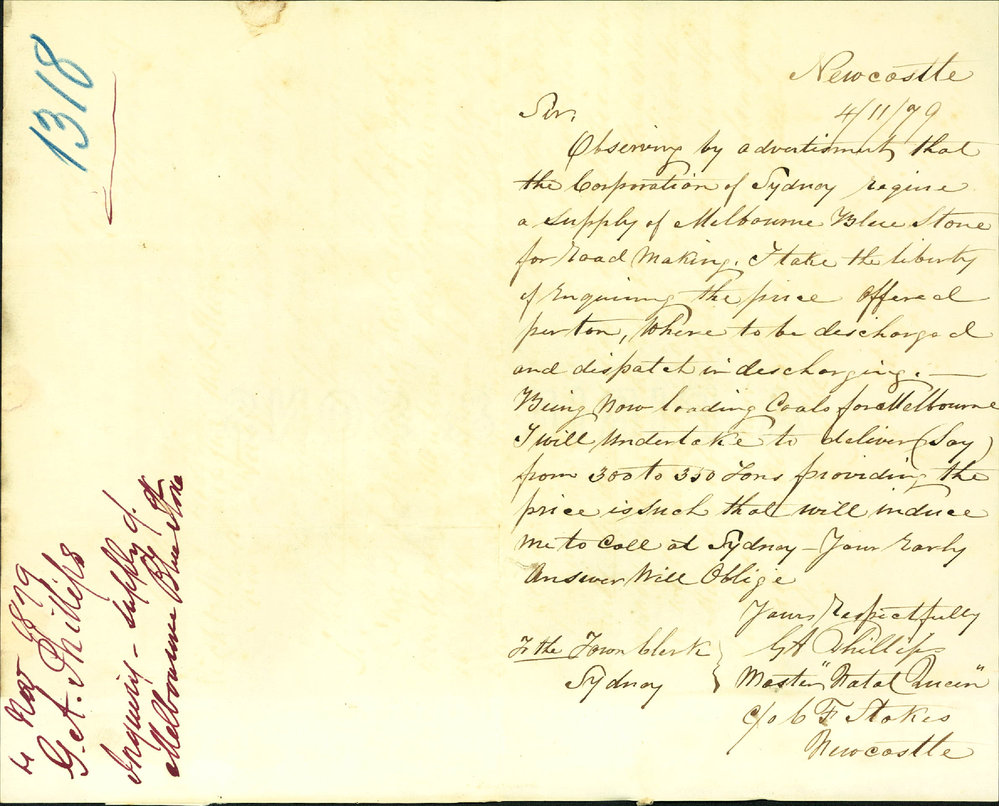 1318
4 Nov 1879
G. A. Phillips
Inquiry - supply of
Melbourne Blue Stone
Newcastle
4/11/79
Sir,
Observing by advertisment that
the Corporation of Sydney requre
a supply of Melbourne Blue Stone
for Road Making. I take the liberty
of Enquiring the price offered
per ton, Where to be descharged
and dispatch in descharging. —
Being Now loading Coals for Melbourne
I will Undertake to deliver (Say)
from 300 to 350 Tons providing the
price is such that will induce
me to Call at Sydney - Your Early
Answer Will Oblige
Yours Respectfully
To the Town Clerk
Sydney
GA Phillips
Master "Natal Queen"
c/o C F Stokes
Newcastle